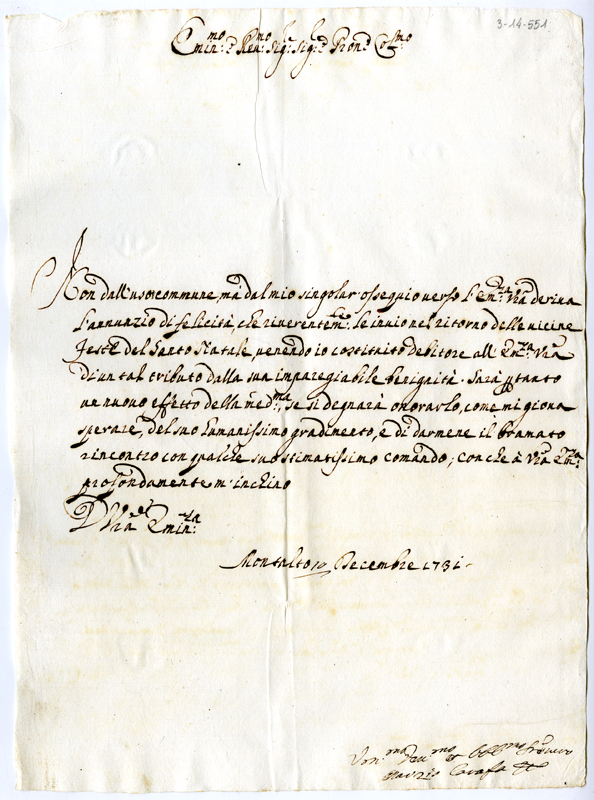 3-14-551
Emin.mo e Reu.mo Sig.r Sig.r e Pron.e Col.mo
Non dall'uso commune, mà dal mio singolar ossequio verso l'Em.za V̄ra deriua
l'annunzio di felicità, che riuerentem.te le inuio nel ritorno delle uicine
Feste del Santo Natale, uenendo io costituito debitore all'Em.za V̄ra
di un tal tributo dalla sua impareggiabile benignità. Sarà p̄tanto
un nuovo effetto della med.ma, se si degnarà onorarlo, come mi gioua
sperare, del suo humanissimo gradimento, e di darmene il bramato
rincontro con qualche suo stimatissimo comando; con che à V̄ra Em.za
profondamente m'inchino
D V̄ra Emin.za
Montalto 10 Decembre 1731
Vm.mo Deu.mo et Obb.mo Seruo
Carafa